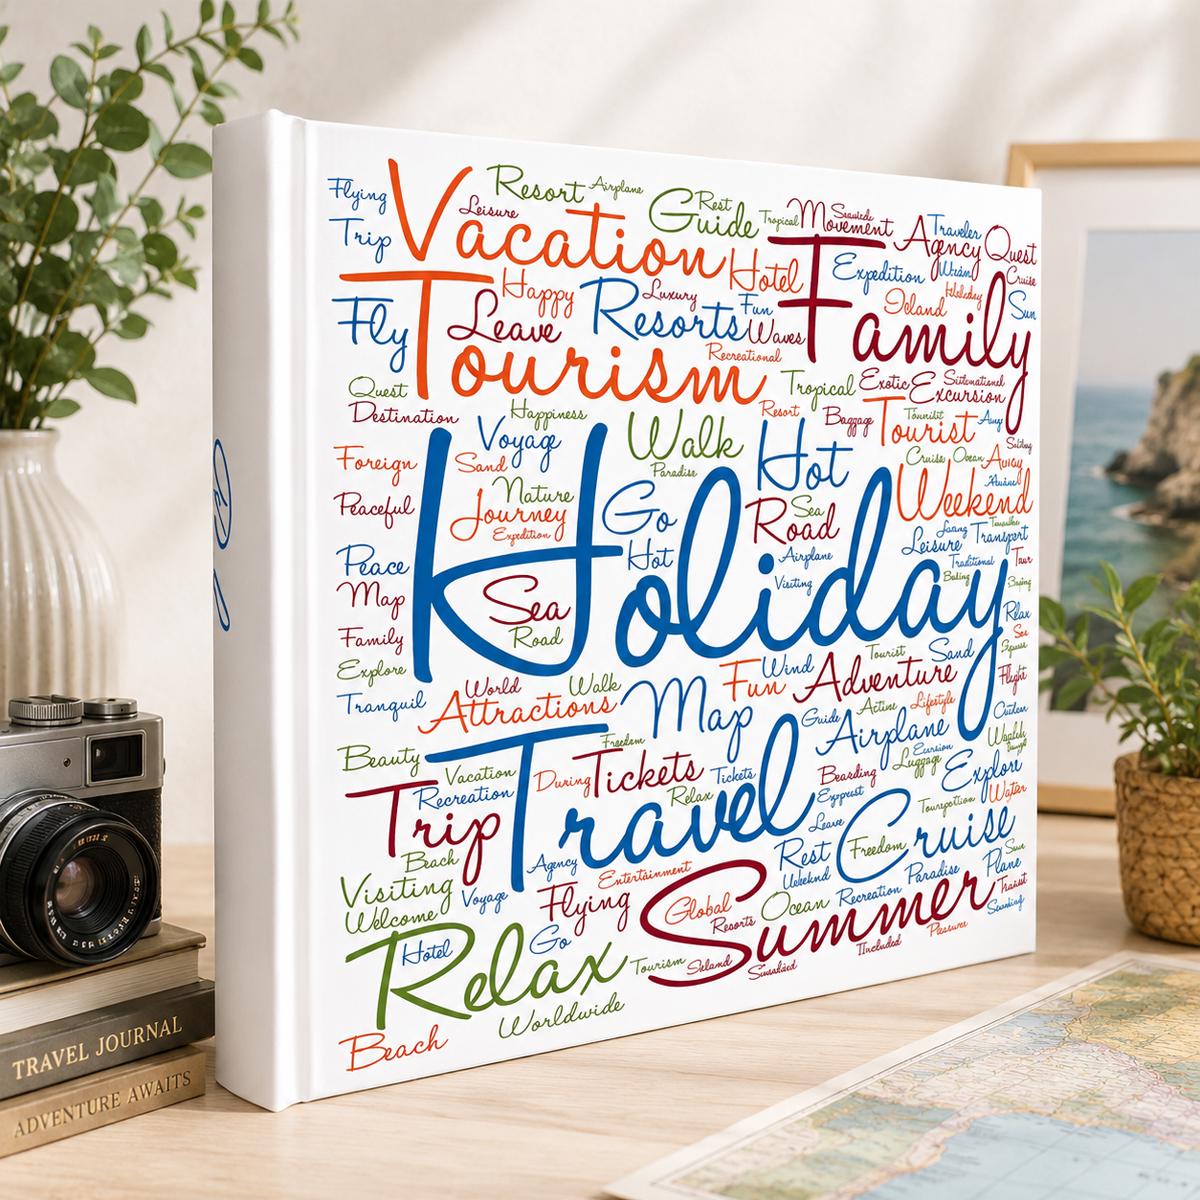 Flying
Resort
Airplane
Vacation
Leisure
Guide
Rest
Tropical
Movement
Agency
Traveler
Quest
Trip
Hotel
Family
Expedition
Cruise
Happy
Luxury
Fun
Island
Sun
Fly
Tourism
Leave
Resorts
Waves
Recreational
Quest
Destination
Happiness
Tropical
Exotic
Excursion
Resort
Baggage
Tourist
Voyage
Walk
Hot
Foreign
Sand
Paradise
Cruise
Ocean
Weekend
Nature
Peaceful
Journey
Expedition
Go
Road
Sea
Holiday
Hot
Airplane
Leisure
Transport
Traditional
Visiting
Peace
Map
Sea
Road
Family
Relax
Explore
Tranquil
World
Walk
Attractions
Map
Fun
Wind
Adventure
Tourist
Sand
Flight
Guide
Active
Lifestyle
Airplane
Beauty
Vacation
Freedom
Travel
During
Tickets
Tickets
Luggage
Explore
Trip
Recreation
Relax
Cruise
Leave
Beach
Agency
Entertainment
Rest
Freedom
Paradise
Plane
Sun
Visiting
Welcome
Voyage
Flying
Summer
Global
Resorts
Ocean
Recreation
Relax
Hotel
Go
Tourism
Worldwide
Beach
TRAVEL JOURNAL
ADVENTURE AWAITS